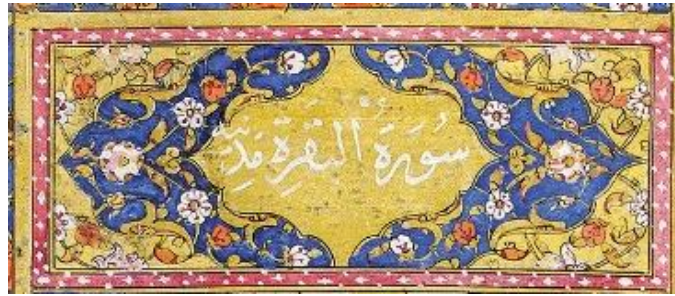 سُورَةُ الْبَقَرَة مَدَنِيَّة